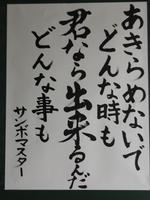 あきらめないで
どんな時も
君なら出来るんだ
どんな事も
サンボマスター